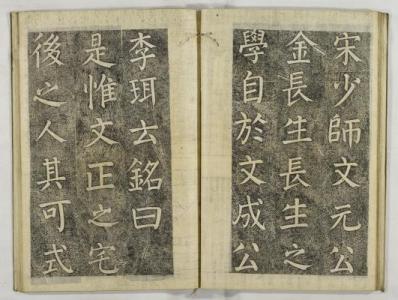 宋少師文元公
金長生長生之
學自於文成公
李珥玄銘曰
是惟文正之宅
後之人其可式